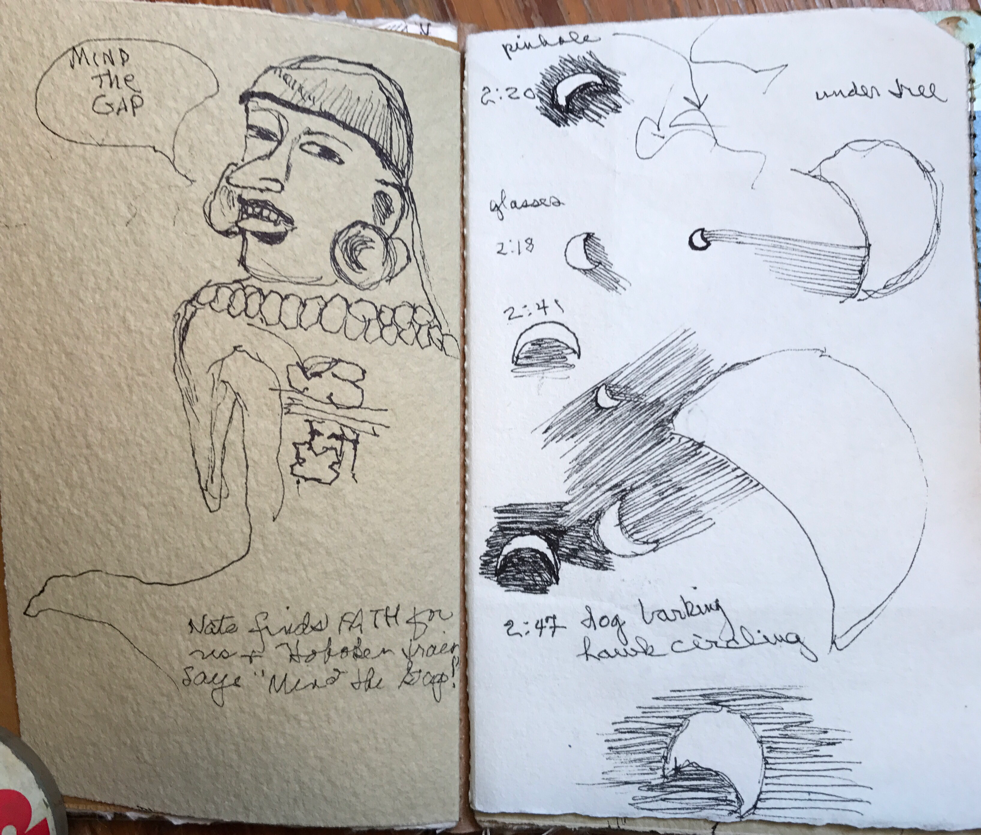 MIND
the
GAP
Nate finds PATH for
us + Hoboken train
Says "Mind the Gap!"
pinhole
2:20
under tree
glasses
2:18
2:41
2:47 dog barking
hawk circling